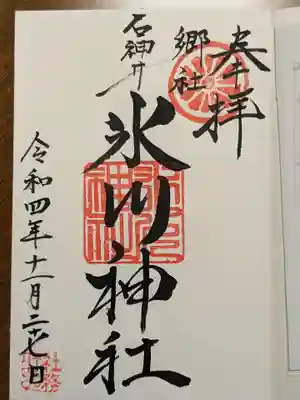 奉拝
郷社
石神井
氷川神社
令和四年十一月二十七日